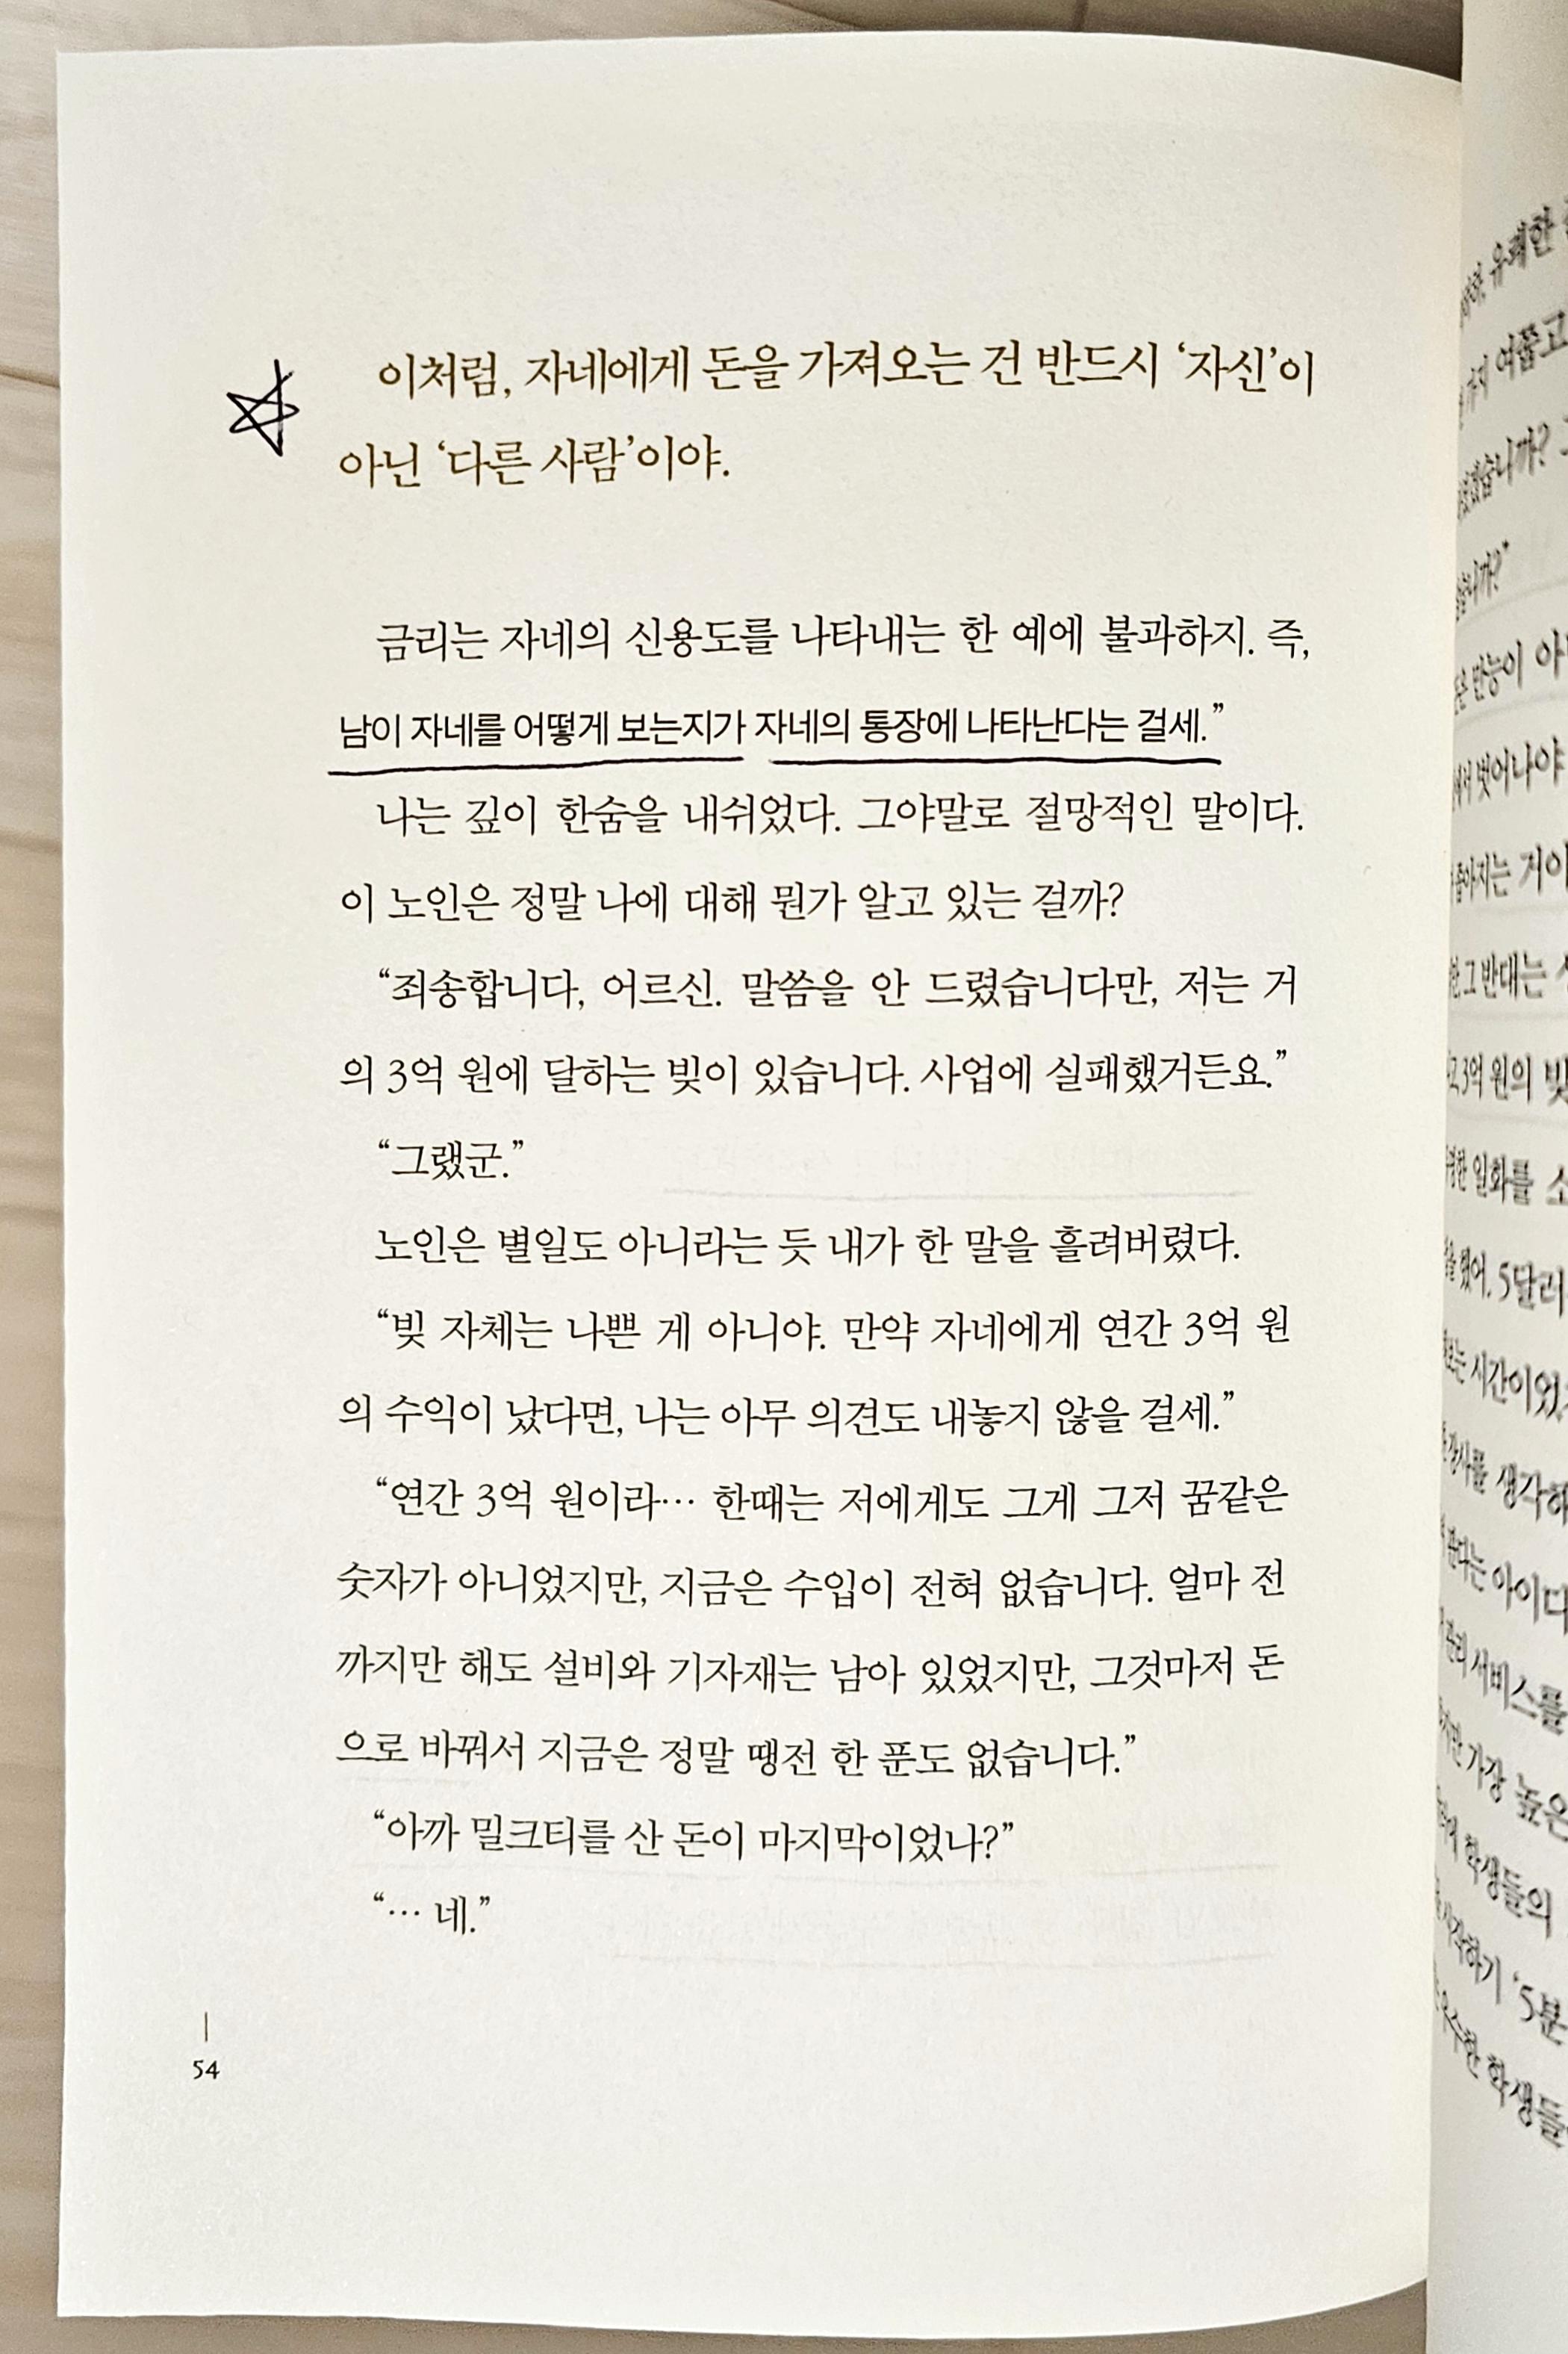 이처럼, 자네에게 돈을 가져오는 건 반드시 ‘자신’이
아닌 ‘다른 사람’이야.
금리는 자네의 신용도를 나타내는 한 예에 불과하지. 즉,
남이 자네를 어떻게 보는지가 자네의 통장에 나타난다는 걸세.”
나는 깊이 한숨을 내쉬었다. 그야말로 절망적인 말이다.
이 노인은 정말 나에 대해 뭔가 알고 있는 걸까?
“죄송합니다, 어르신. 말씀을 안 드렸습니다만, 저는 거
의 3억 원에 달하는 빚이 있습니다. 사업에 실패했거든요.”
“그랬군.”
노인은 별일도 아니라는 듯 내가 한 말을 흘려버렸다.
“빚 자체는 나쁜 게 아니야. 만약 자네에게 연간 3억 원
의 수익이 났다면, 나는 아무 의견도 내놓지 않을 걸세.”
“연간 3억 원이라… 한때는 저에게도 그게 그저 꿈같은
숫자가 아니었지만, 지금은 수입이 전혀 없습니다. 얼마 전
까지만 해도 설비와 기자재는 남아 있었지만, 그것마저 돈
으로 바꿔서 지금은 정말 땡전 한 푼도 없습니다.”
“아까 밀크티를 산 돈이 마지막이었나?”
“… 네.”
54
유쾌한
여쭙고
반능이 아
벗어나야
거이
그 반대는
3억 원의 빚
일화를 소
5달러
시간이었
생각해
아이디
서비스를
가장 높은
학생들의
‘5분
학생들